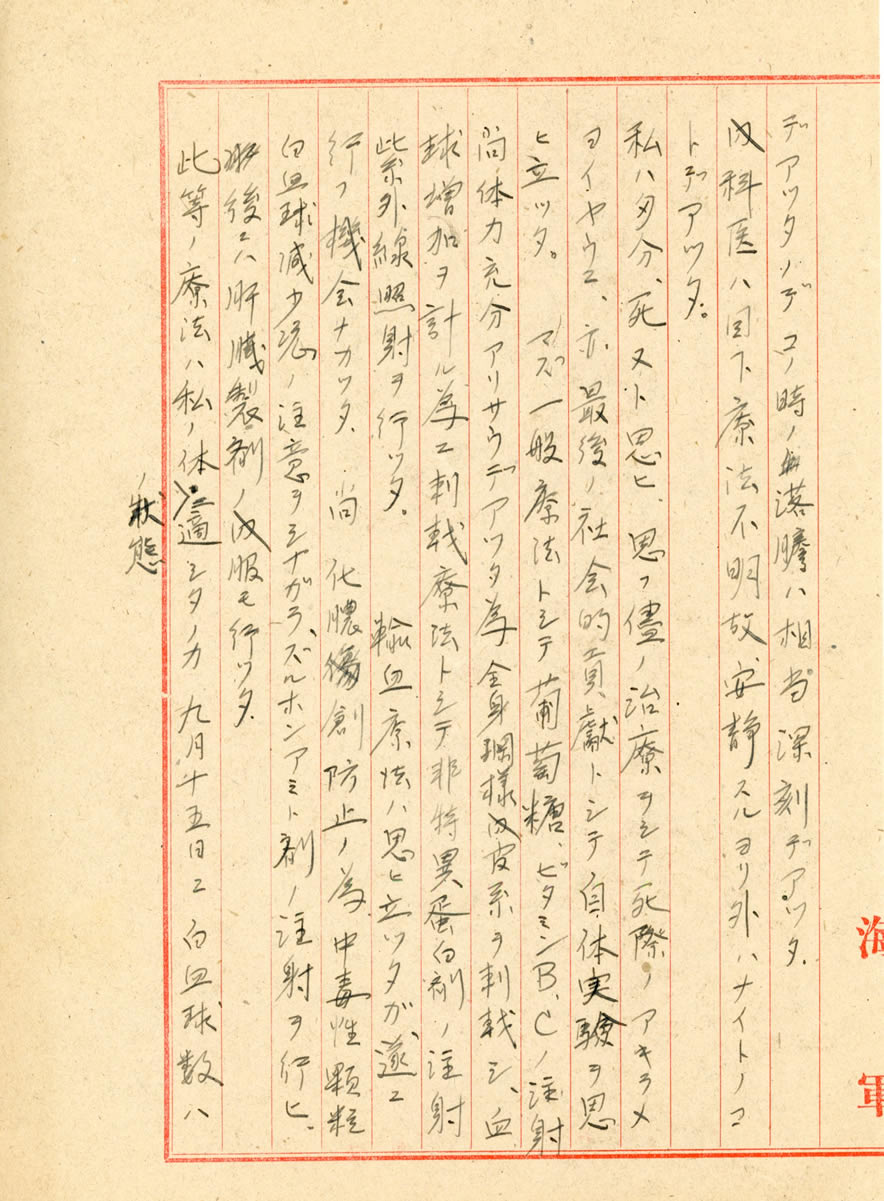 デアツタノデコノ時ノ落膽ハ相当深刻デアツタ.
内科医ハ目下療法不明故、安静スルヨリ外ハナイトノコ
トデアツタ。
私ハ多分、死ヌト思ヒ、思フ儘ノ治療ヲシテ死際ノアキラメ
ヨイヤウニ、亦最後ノ社会的貢獻トシテ自体実驗ヲ思
ヒ立ツタ。 マズ一般療法トシテ葡萄糖、ビタミンB、Cノ注射
尚体力充分アリサウデアツタ為全身網様内皮系ヲ刺戟シ、血
球増加ヲ計ル為ニ刺戟療法トシテ非特異蛋白剤ノ注射
紫外線照射ヲ行ツタ。 輸血療法ハ思ヒ立ツタガ、遂ニ
行フ機会ナカツタ. 尚化膿傷創防止ノ為、中毒性顆粒
白血球減少症ノ注意ヲシナガラ、ズルホンアミト剤ノ注射ヲ行ヒ、
後ニハ肝臓製剤ノ内服モ行ツタ.
此等ノ療法ハ私ノ体ノ状態ニ適シタノカ 九月十五日ニ白血球数ハ
海軍